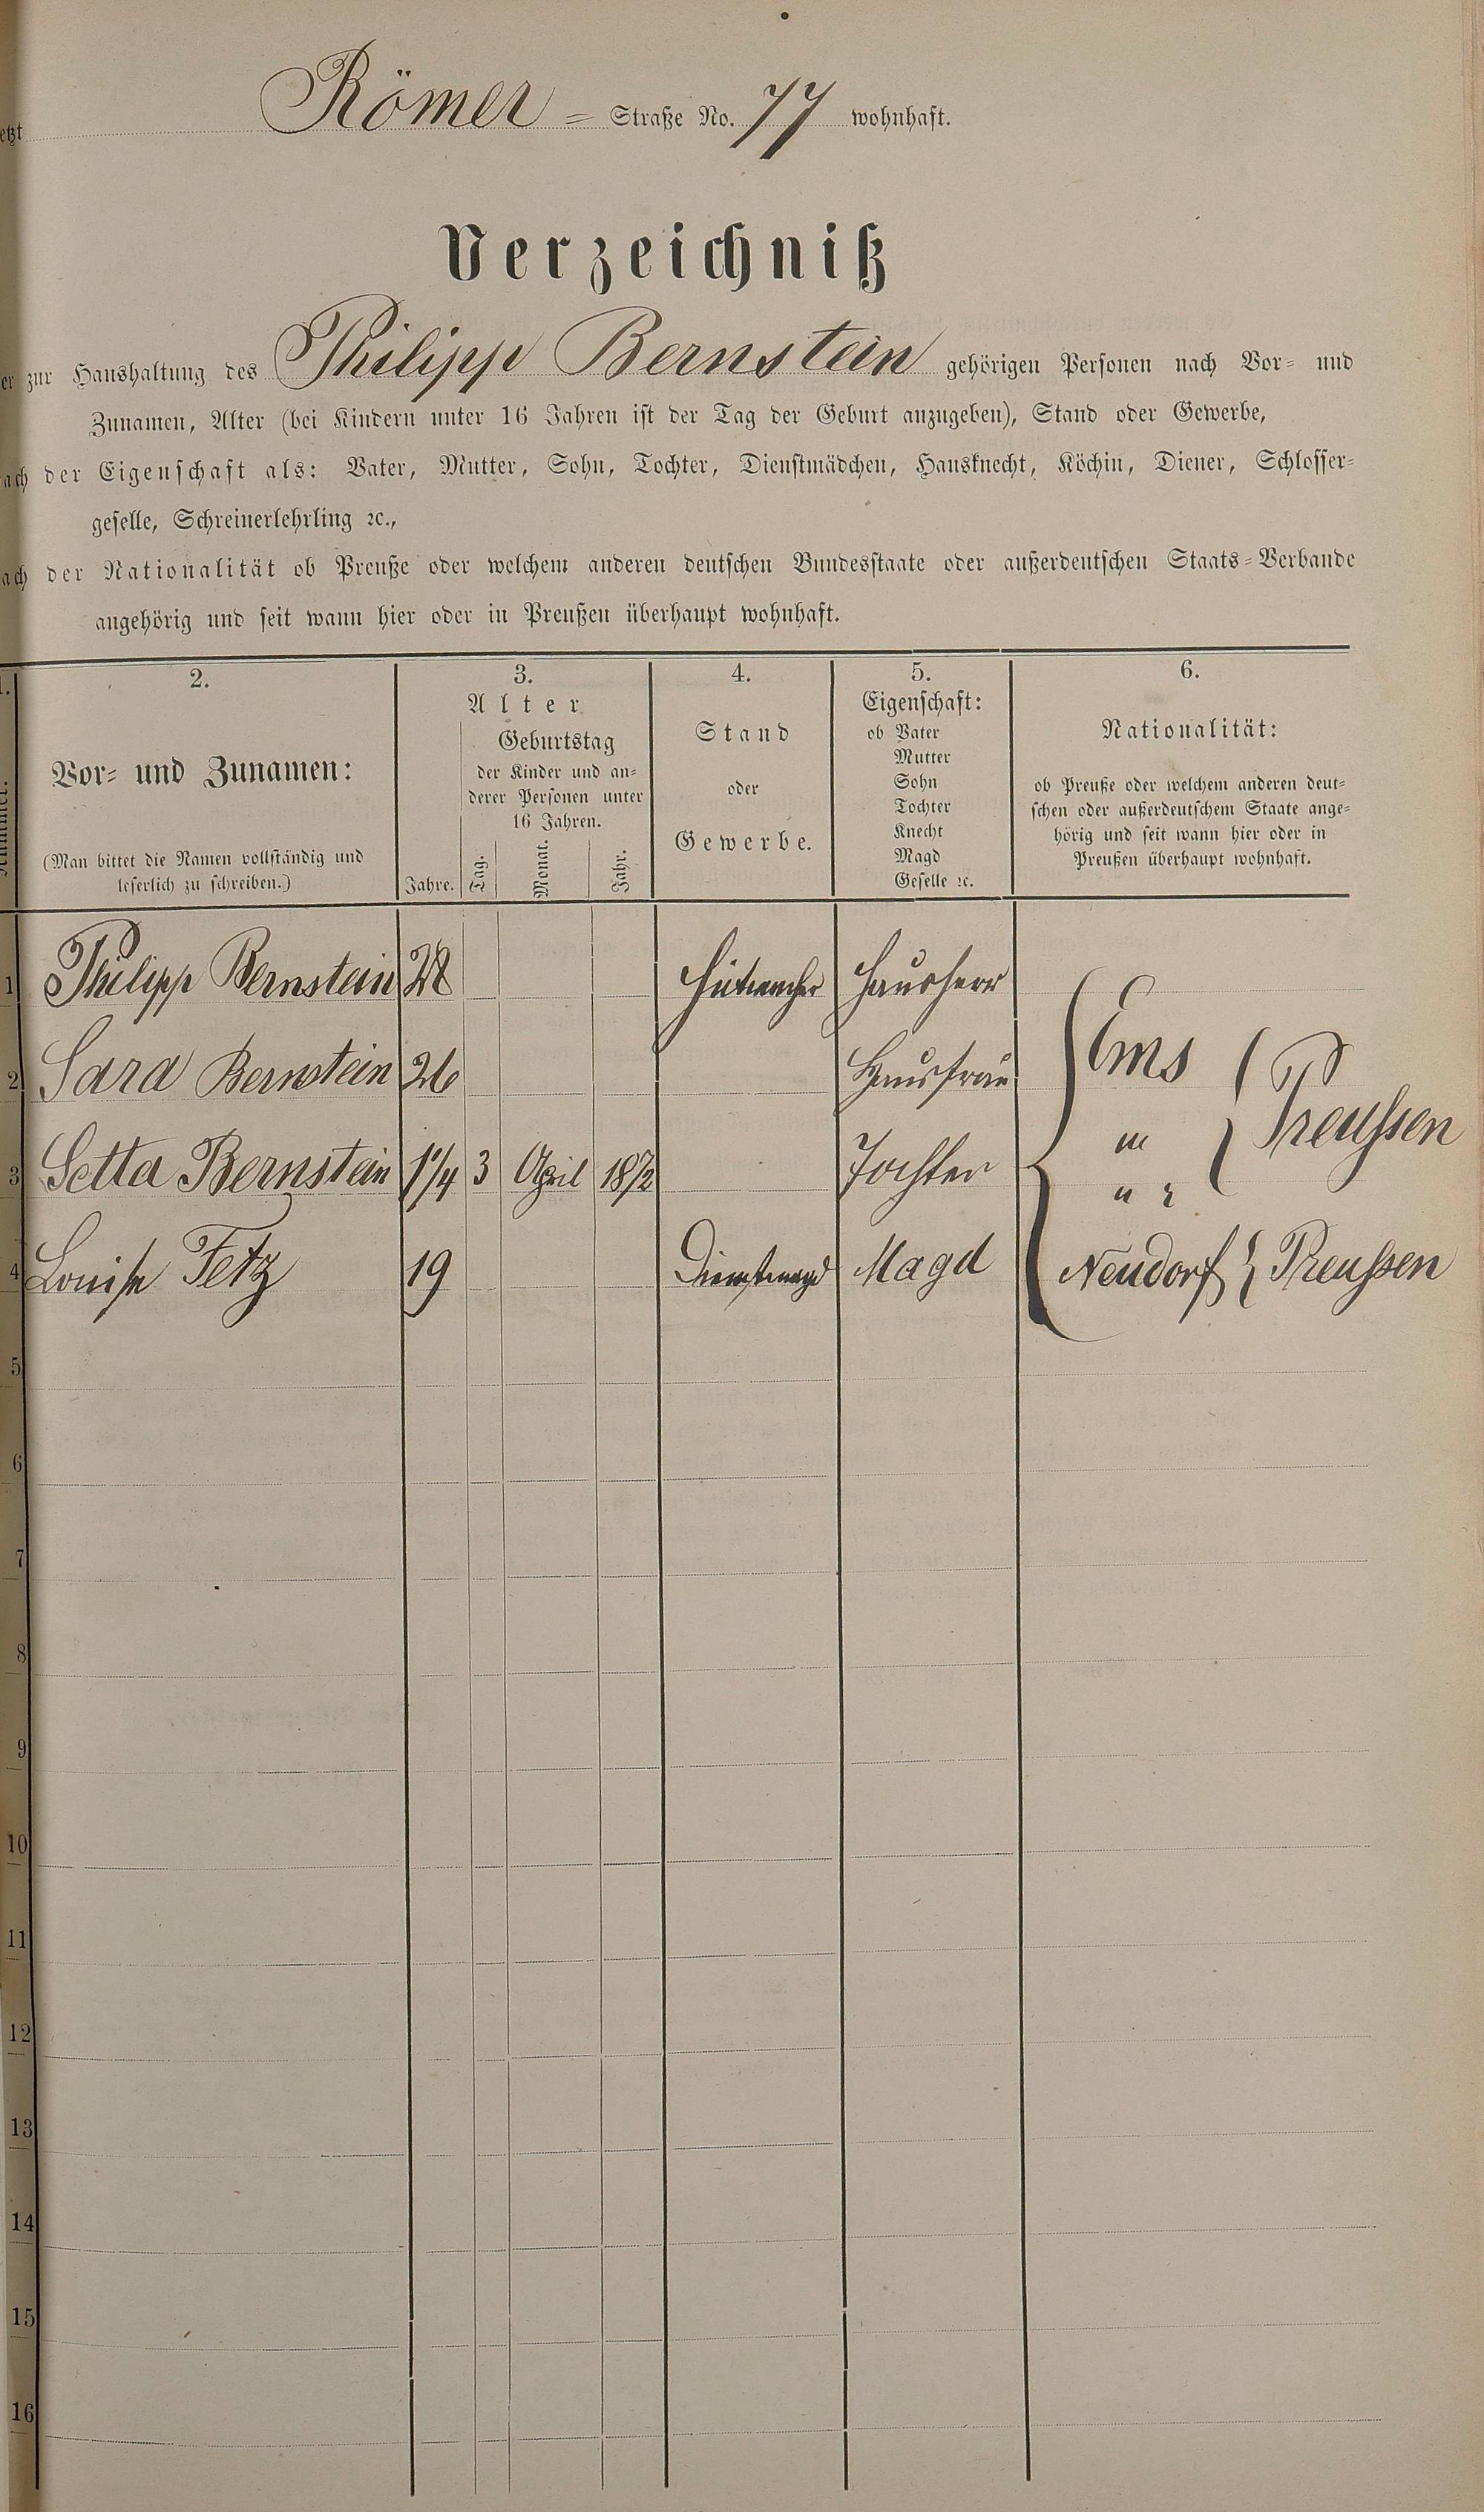 etzt Römer = Straße No. 77 wohnhaft.
Verzeichniß
er zur Haushaltung des Philipp Bernstein gehörigen Personen nach Vor- und
Zunamen, Alter (bei Kindern unter 16 Jahren ist der Tag der Geburt anzugeben), Stand oder Gewerbe,
ach der Eigenschaft als: Vater, Mutter, Sohn, Tochter, Dienstmädchen, Hausknecht, Köchin, Diener, Schlosser-
geselle, Schreinerlehrling ꝛc.,
ach der Nationalität ob Preuße oder welchem anderen deutschen Bundesstaate oder außerdeutschen Staats-Verbande
angehörig und seit wann hier oder in Preußen überhaupt wohnhaft.
1. 2. 3. 4. 5. 6.
Nummer.
Vor- und Zunamen:
(Man bittet die Namen vollständig und
leserlich zu schreiben.)
Alter
Geburtstag
der Kinder und an-
derer Personen unter
16 Jahren.
Jahre. Tag. Monat. Jahr.
Stand
oder
Gewerbe.
Eigenschaft:
ob Vater
Mutter
Sohn
Tochter
Knecht
Magd
Geselle ꝛc.
Nationalität:
ob Preuße oder welchem anderen deut-
schen oder außerdeutschem Staate ange-
hörig und seit wann hier oder in
Preußen überhaupt wohnhaft.
1 Philipp Bernstein 28 Hutmacher Hausherr
2 Sara Bernstein 26 Hausfrau Ems Preußen
3 Setta Bernstein 1 1/4 3 April 1872 Tochter " "
4 Louise Fetz 19 Dienstmagd Magd Neudorf Preußen
5
6
7
8
9
10
11
12
13
14
15
16